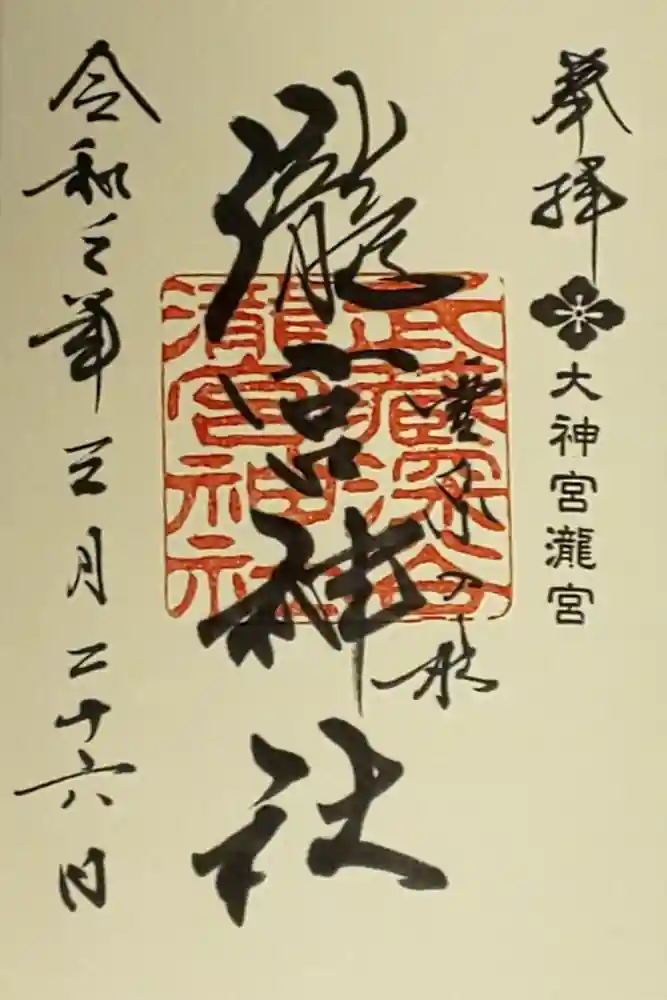 奉拝
大神宮瀧宮
豊泉の杜
瀧宮神社
武蔵深谷
瀧宮神社
令和三年三月二十六日